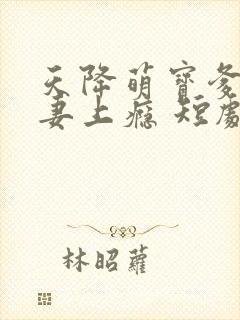 天降萌寶爹
妻上癮 短劇
林昭蘿